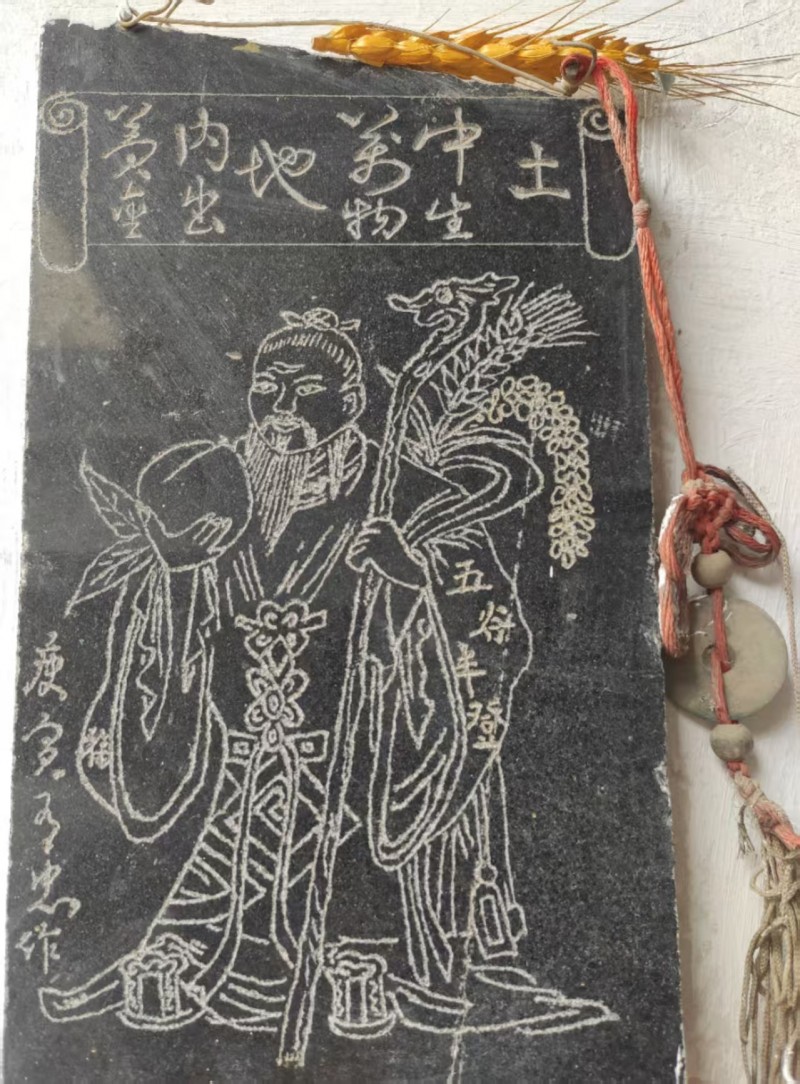 土
中生
萬物
地
内出
黄金
五谷丰登
福
庚寅忠作